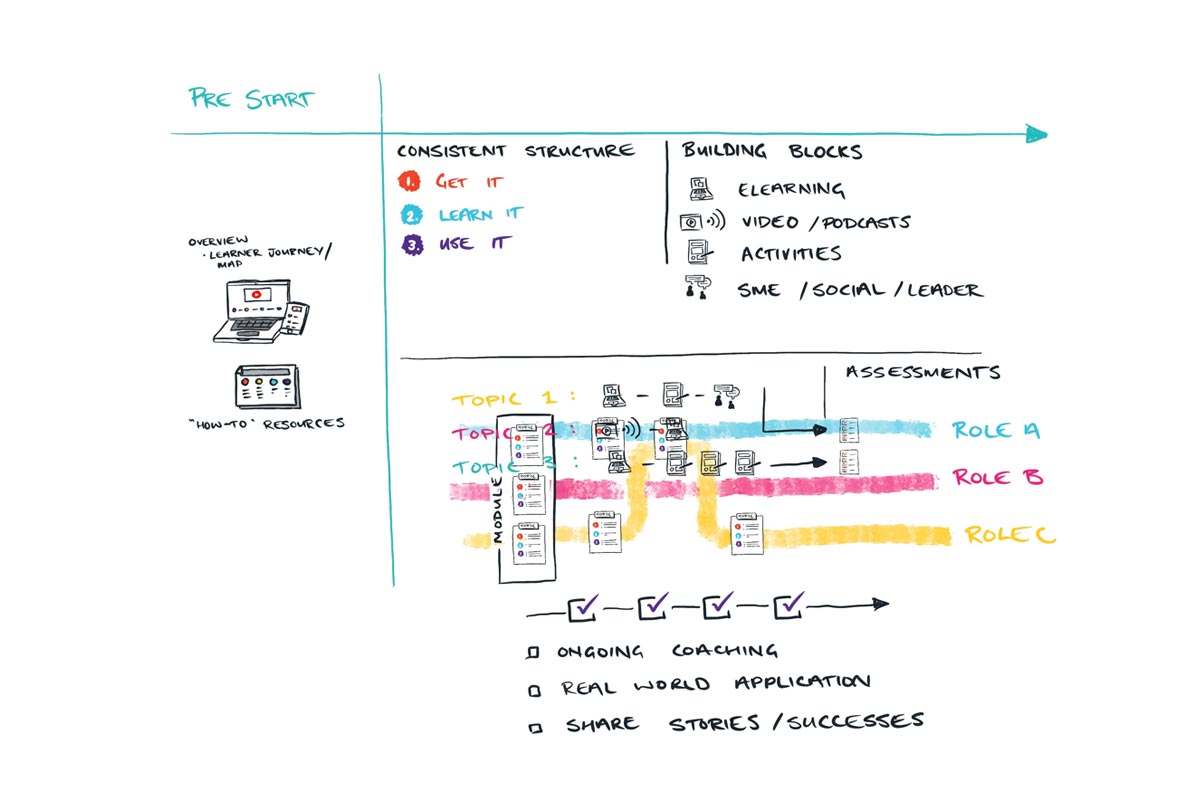 PRE START
CONSISTENT STRUCTURE
1. GET IT
2. LEARN IT
3. USE IT
BUILDING BLOCKS
ELEARNING
VIDEO / PODCASTS
ACTIVITIES
SME / SOCIAL / LEADER
OVERVIEW
· LEARNER JOURNEY /
MAP
"HOW-TO" RESOURCES
ASSESSMENTS
TOPIC 1 :
TOPIC 2
TOPIC 3 :
MODULE
ROLE A
ROLE B
ROLE C
ONGOING COACHING
REAL WORLD APPLICATION
SHARE STORIES / SUCCESSES